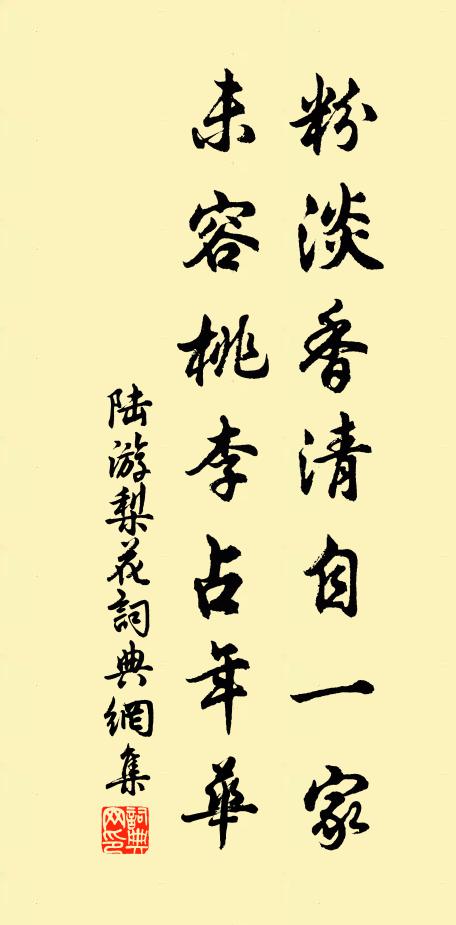 粉淡香清自一家
未容桃李占年華
陸游梨花詞典網集
詞典网印